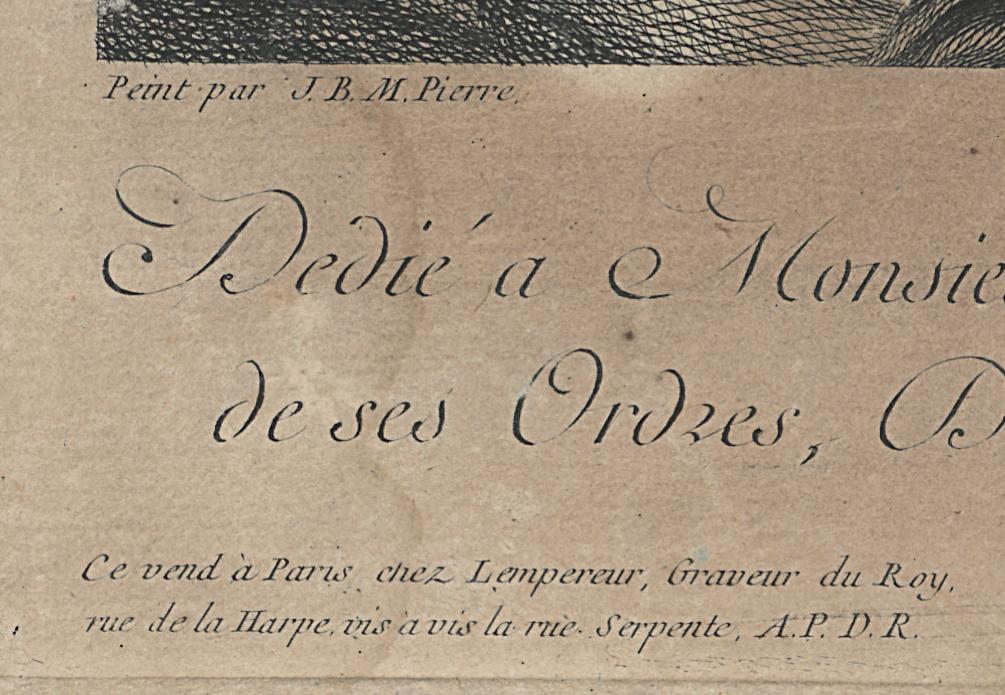 Peint par J. B. M. Pierre.
Dedié a Monsie
de ses Ordres, D
Ce vend à Paris chez Lempereur, Graveur du Roy,
rue de la Harpe, vis à vis la rüe Serpente, A. P. D. R.